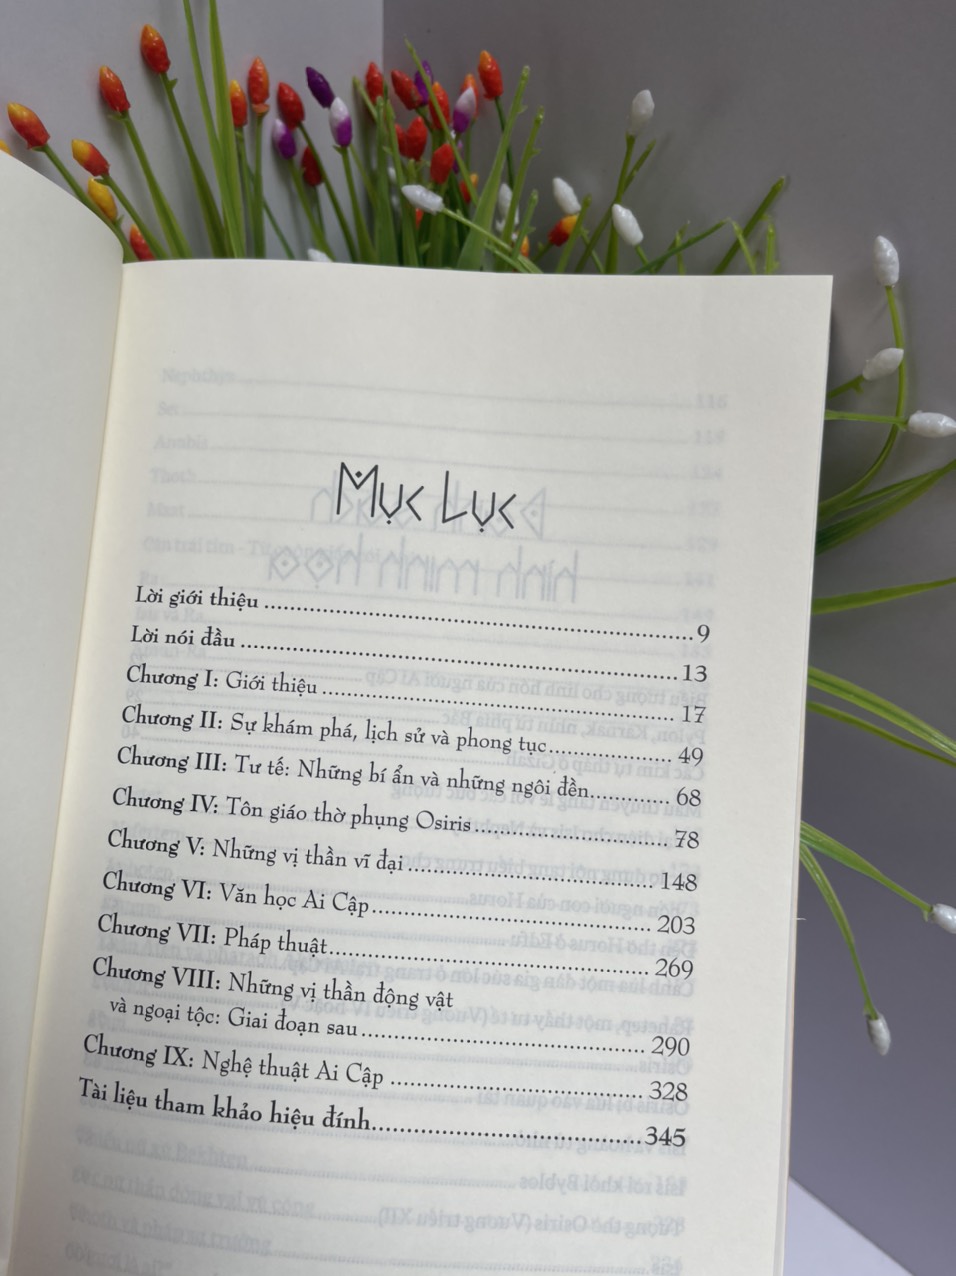 Mục Lục
Lời giới thiệu ........ 9
Lời nói đầu ........ 13
Chương I: Giới thiệu ........ 17
Chương II: Sự khám phá, lịch sử và phong tục ........ 49
Chương III: Tư tế: Những bí ẩn và những ngôi đền ........ 68
Chương IV: Tôn giáo thờ phụng Osiris ........ 78
Chương V: Những vị thần vĩ đại ........ 148
Chương VI: Văn học Ai Cập ........ 203
Chương VII: Pháp thuật ........ 269
Chương VIII: Những vị thần động vật
và ngoại tộc: Giai đoạn sau ........ 290
Chương IX: Nghệ thuật Ai Cập ........ 328
Tài liệu tham khảo hiệu đính ........ 345